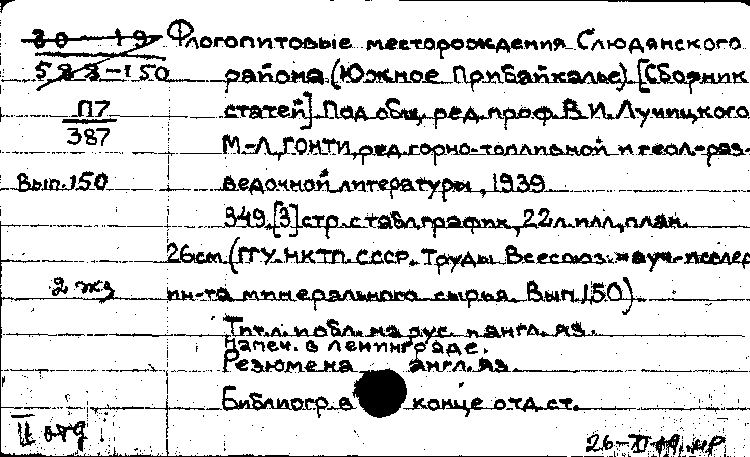 30-19 Флогопитовые месторождения Слюдянского
588-150 района (Южное Прибайкалье) [Сборник
П7 статей]. Под общ. ред. проф. В.И. Лучицкого
387 М-Л, ГОНТИ, ред. горно-топливной и геол-раз-
Вып.150 ведочной литературы, 1939.
349, [3] стр. с табл. график, 22 л. илл, план.
26см. (ГГУ. НКТП. СССР. Труды Всесоюз. науч-исслед
2 экз ин-та минерального сырья. Вып.150).
Тит.л. и обл. на рус. и англ. яз.
Напеч. в Ленинграде.
Резюме на англ. яз.
Библиогр. в конце отд. ст.
II отд